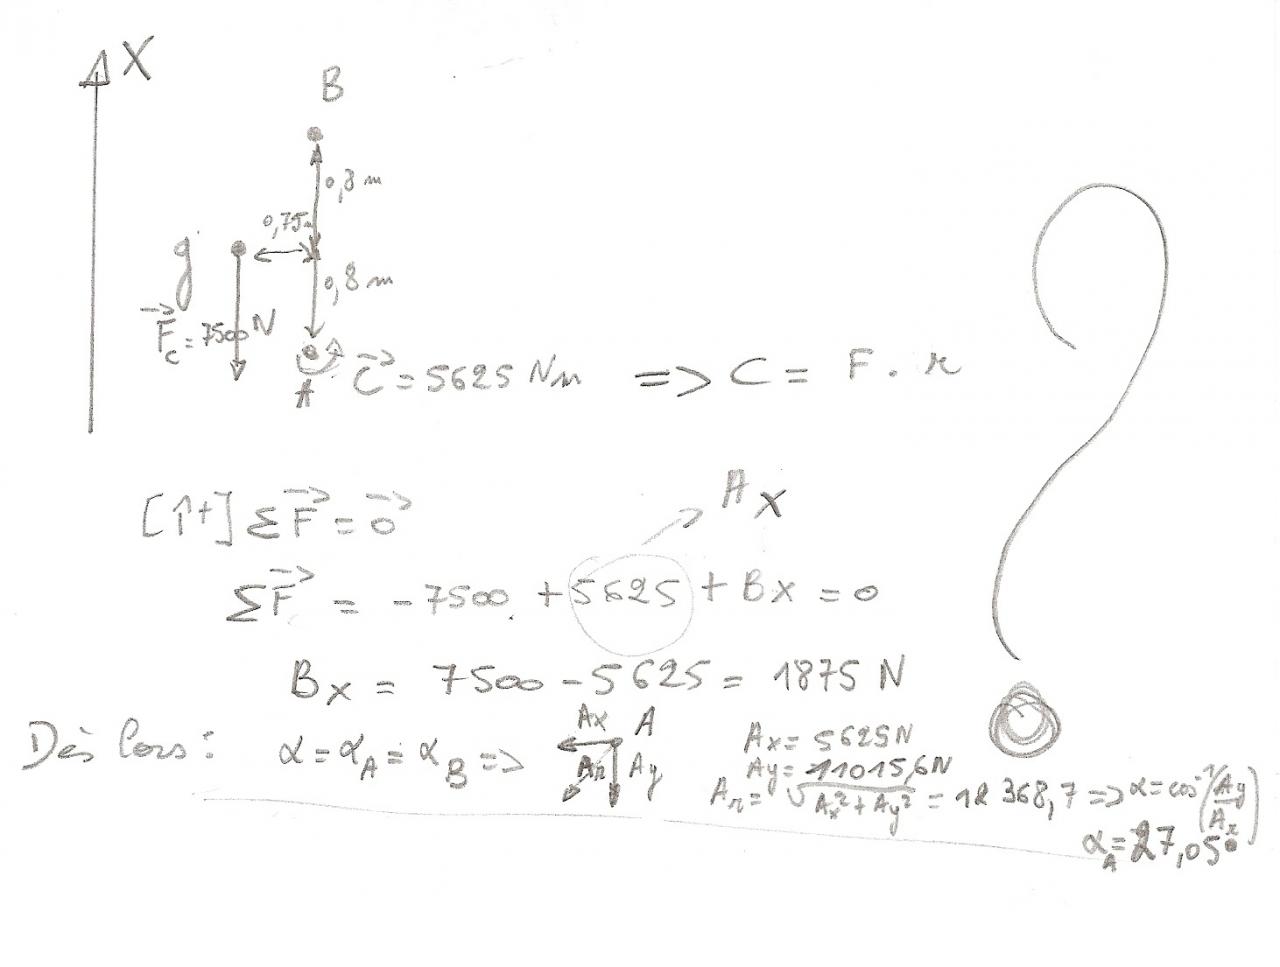 X
B
0,8 m
0,75m
g
0,8 m
F⃗c = 7500 N
A
C⃗ = 5625 Nm => C = F . r
[↑+] ΣF⃗ = 0⃗
Ax
ΣF⃗ = -7500 + 5625 + Bx = 0
Bx = 7500 - 5625 = 1875 N
Dès lors : α = αA = αB =>
Ax A
Ar Ay
Ax = 5625N
Ay = 11015,6N
Ar = √(Ax² + Ay²) = 12 368,7 => α = cos⁻¹(Ay/Ar)
αA = 27,05°